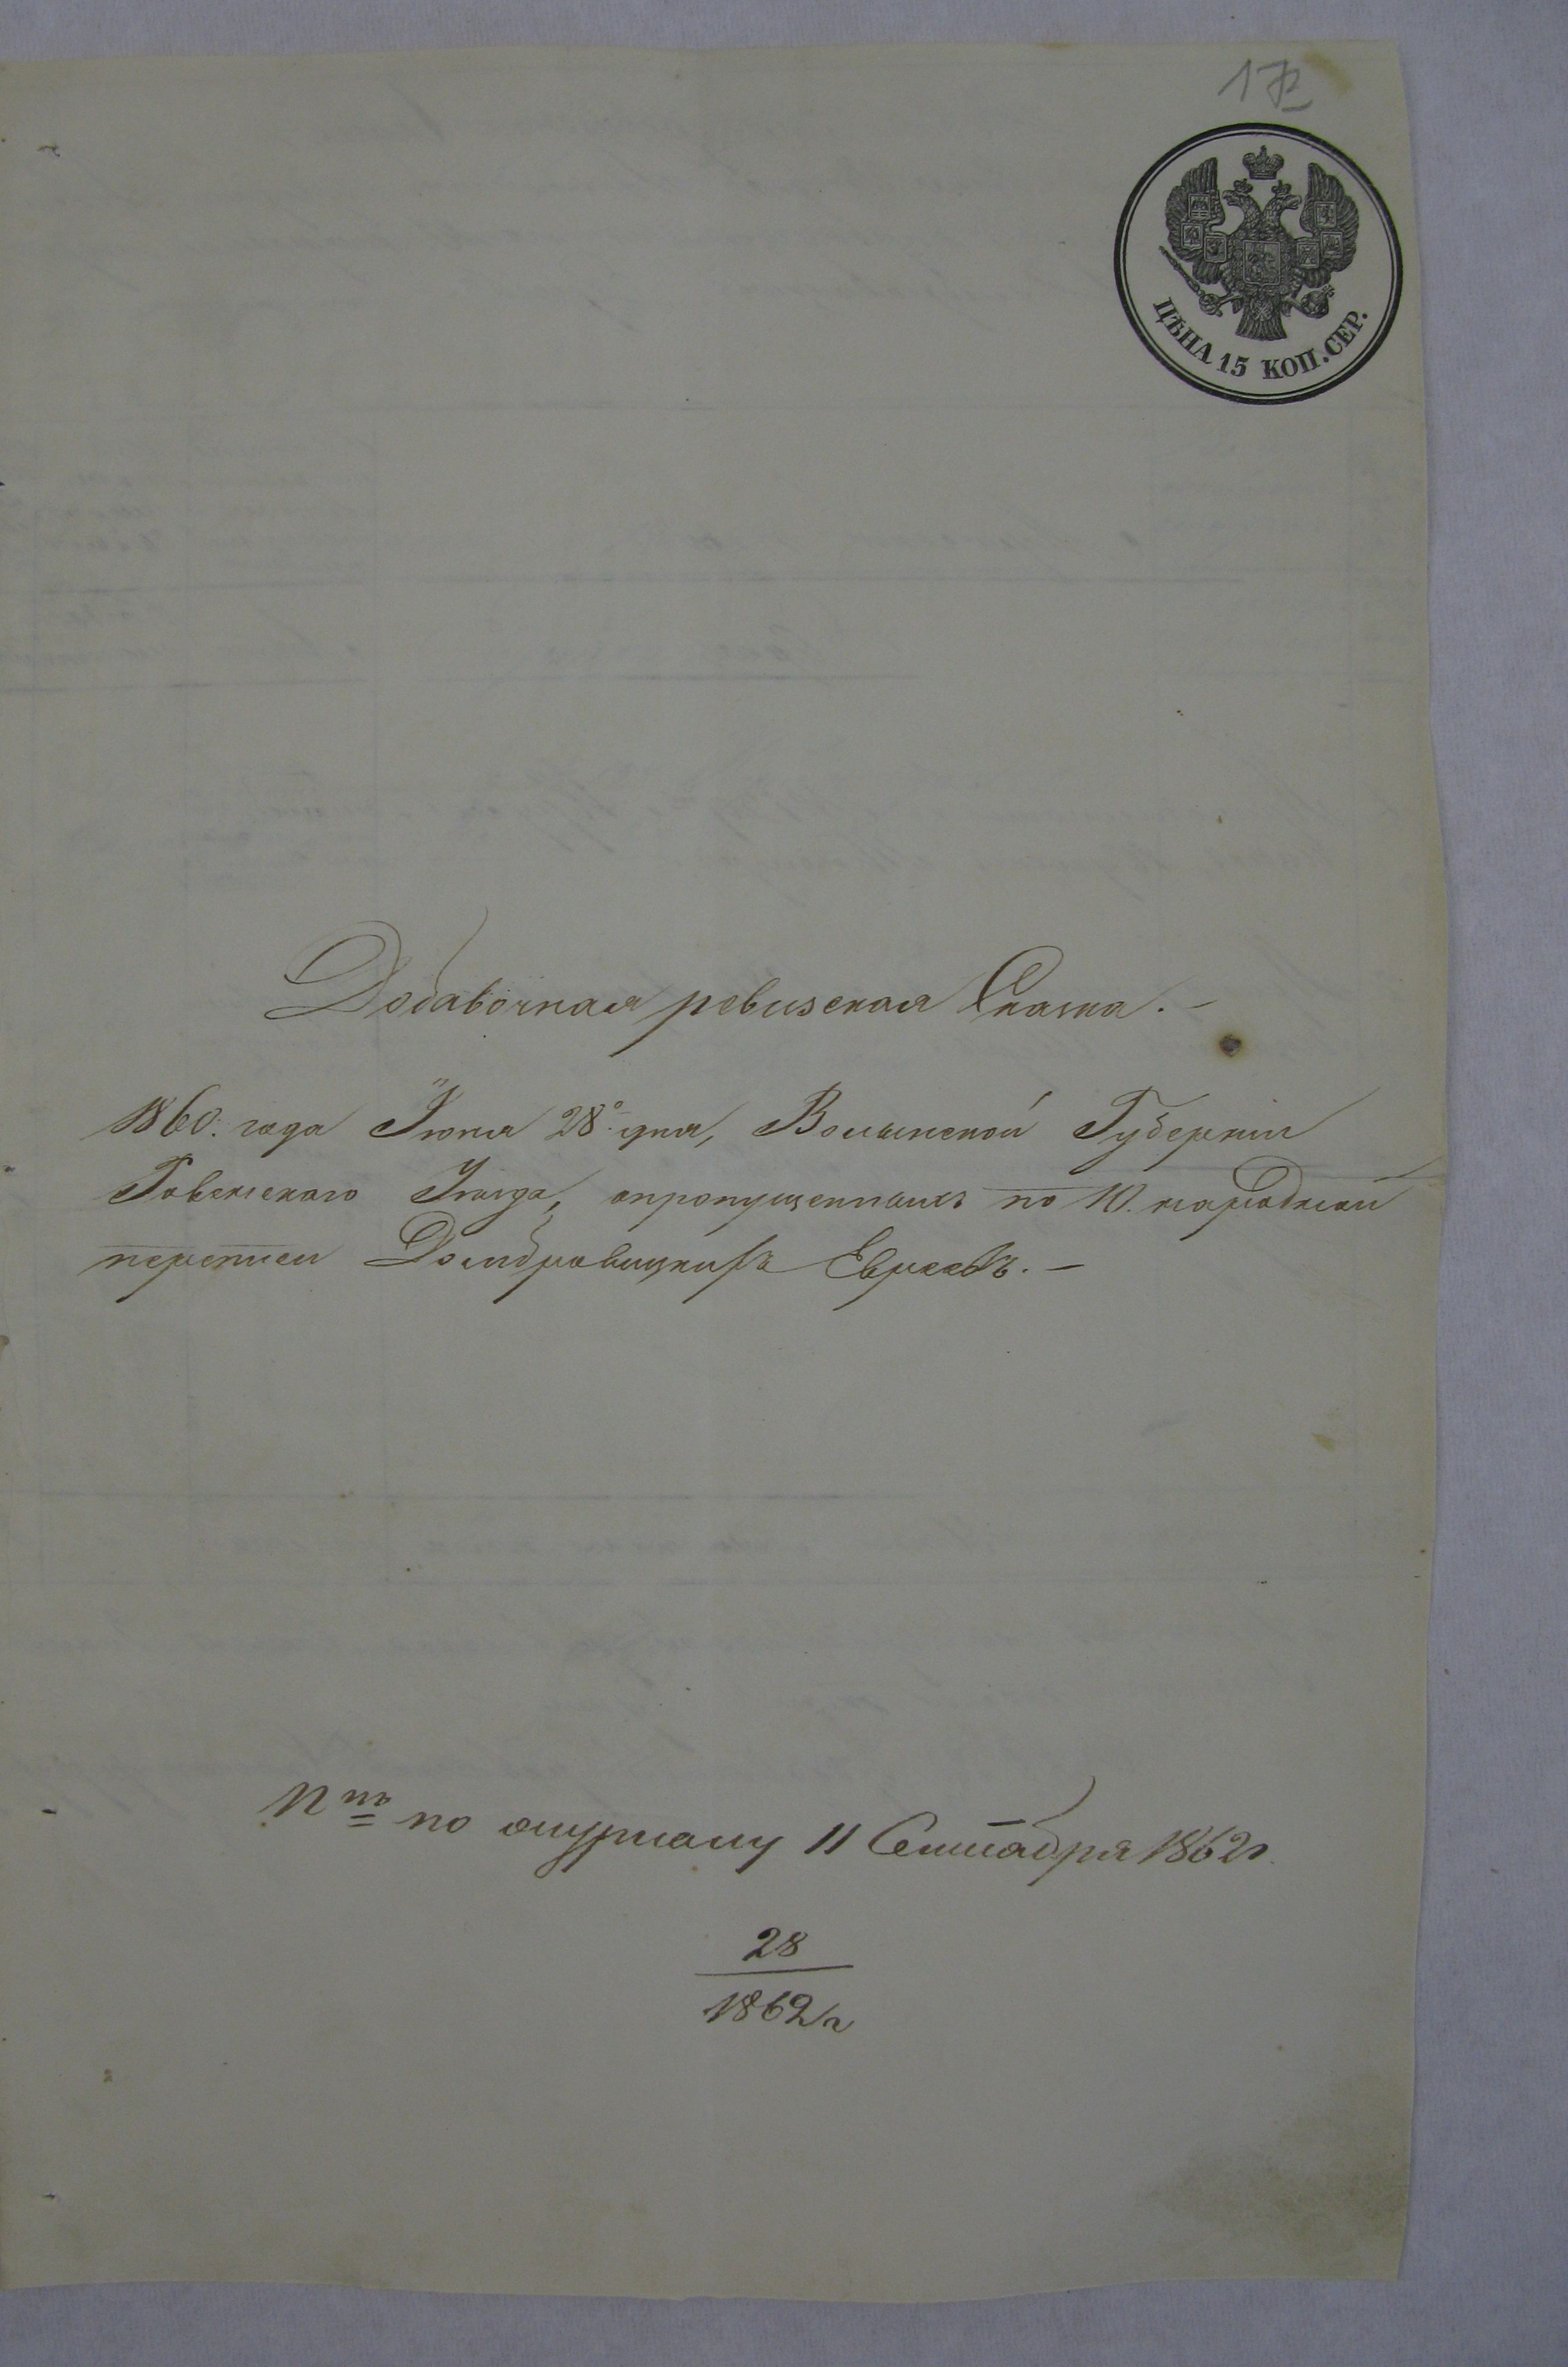 ЦѢНА 15 КОП. СЕР.
Добавочная ревизская Сказка. -
1860. года Июня 28о дня, Волынской Губерніи
Ровенскаго Уѣзда, опропущенныхъ по 10. народной
переписи Домбровицкихъ Евреевъ. -
по журналу 11 Сентября 1862г.
28
1862/г